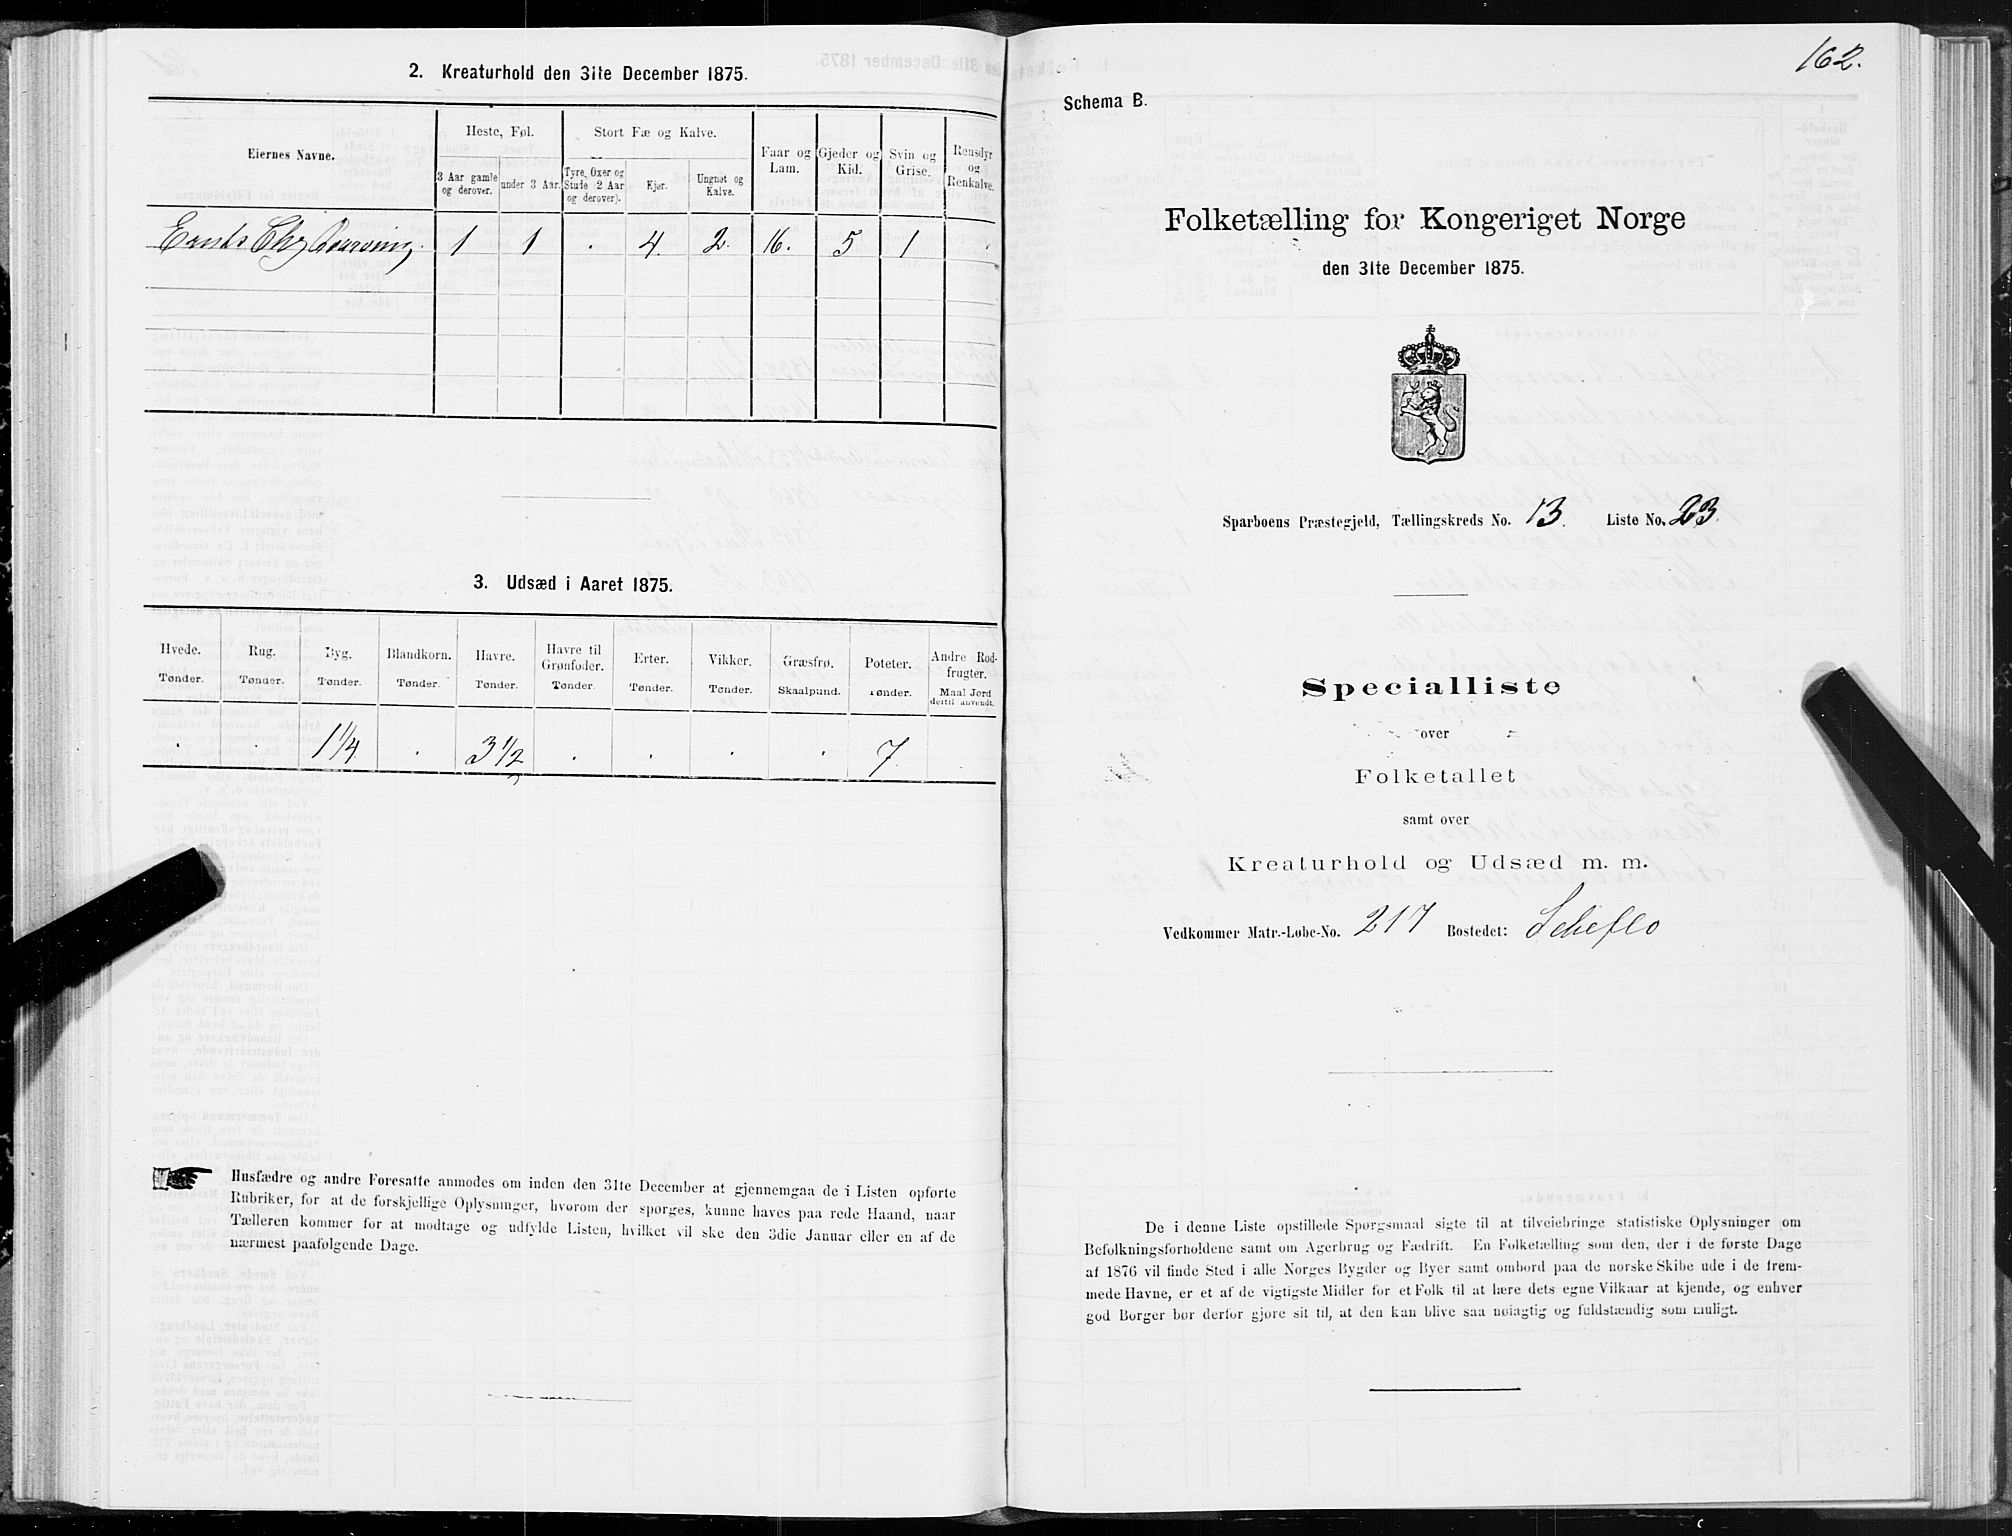 2. Kreaturhold den 31te December 1875.
Eiernes Navne.
Heste, Føl.
Stort Fæ og Kalve.
Faar og Lam.
Gjeder og Kid.
Svin og Grise.
Rensdyr og Renkalve.
3 Aar gamle og derover.
under 3 Aar.
Tyre, Oxer og Stude (2 Aar og derover).
Kjør.
Ungnøt og Kalve.
1 1 . 4. 2. 16. 5 1 .
3. Udsæd i Aaret 1875.
Hvede. Rug. Byg. Blandkorn. Havre. Havre til Grønfoder. Erter. Vikker. Græsfrø. Poteter. Andre Rodfrugter.
Tønder. Tønder. Tønder. Tønder. Tønder. Tønder. Tønder. Tønder. Skaalpund. Tønder. Maal Jord dertil anvendt.
. . 1 1/4 . 3 1/2 . . . . 7 .
Husfædre og andre Foresatte anmodes om inden den 31te December at gjennemgaa de i Listen opførte
Rubriker, for at de forskjellige Oplysninger, hvorom der spørges, kunne haves paa rede Haand, naar
Tælleren kommer for at modtage og udfylde Listen, hvilket vil ske den 3die Januar eller en af de
nærmest paafølgende Dage.
162.
Schema B.
Folketælling for Kongeriget Norge
den 31te December 1875.
Sparboens Præstegjeld, Tællingskreds No. 13. Liste No. 23.
Specialliste
over
Folketallet
samt over
Kreaturhold og Udsæd m. m.
Vedkommer Matr.-Løbe-No. 217 Bostedet: Scheflo
De i denne Liste opstillede Spørgsmaal sigte til at tilveiebringe statistiske Oplysninger om
Befolkningsforholdene samt om Agerbrug og Fædrift. En Folketælling som den, der i de første Dage
af 1876 vil finde Sted i alle Norges Bygder og Byer samt ombord paa de norske Skibe ude i de frem-
mede Havne, er et af de vigtigste Midler for et Folk til at lære dets egne Vilkaar at kjende, og enhver
god Borger bør derfor gjøre sit til, at den kan blive saa nøiagtig og fuldstændig som muligt.